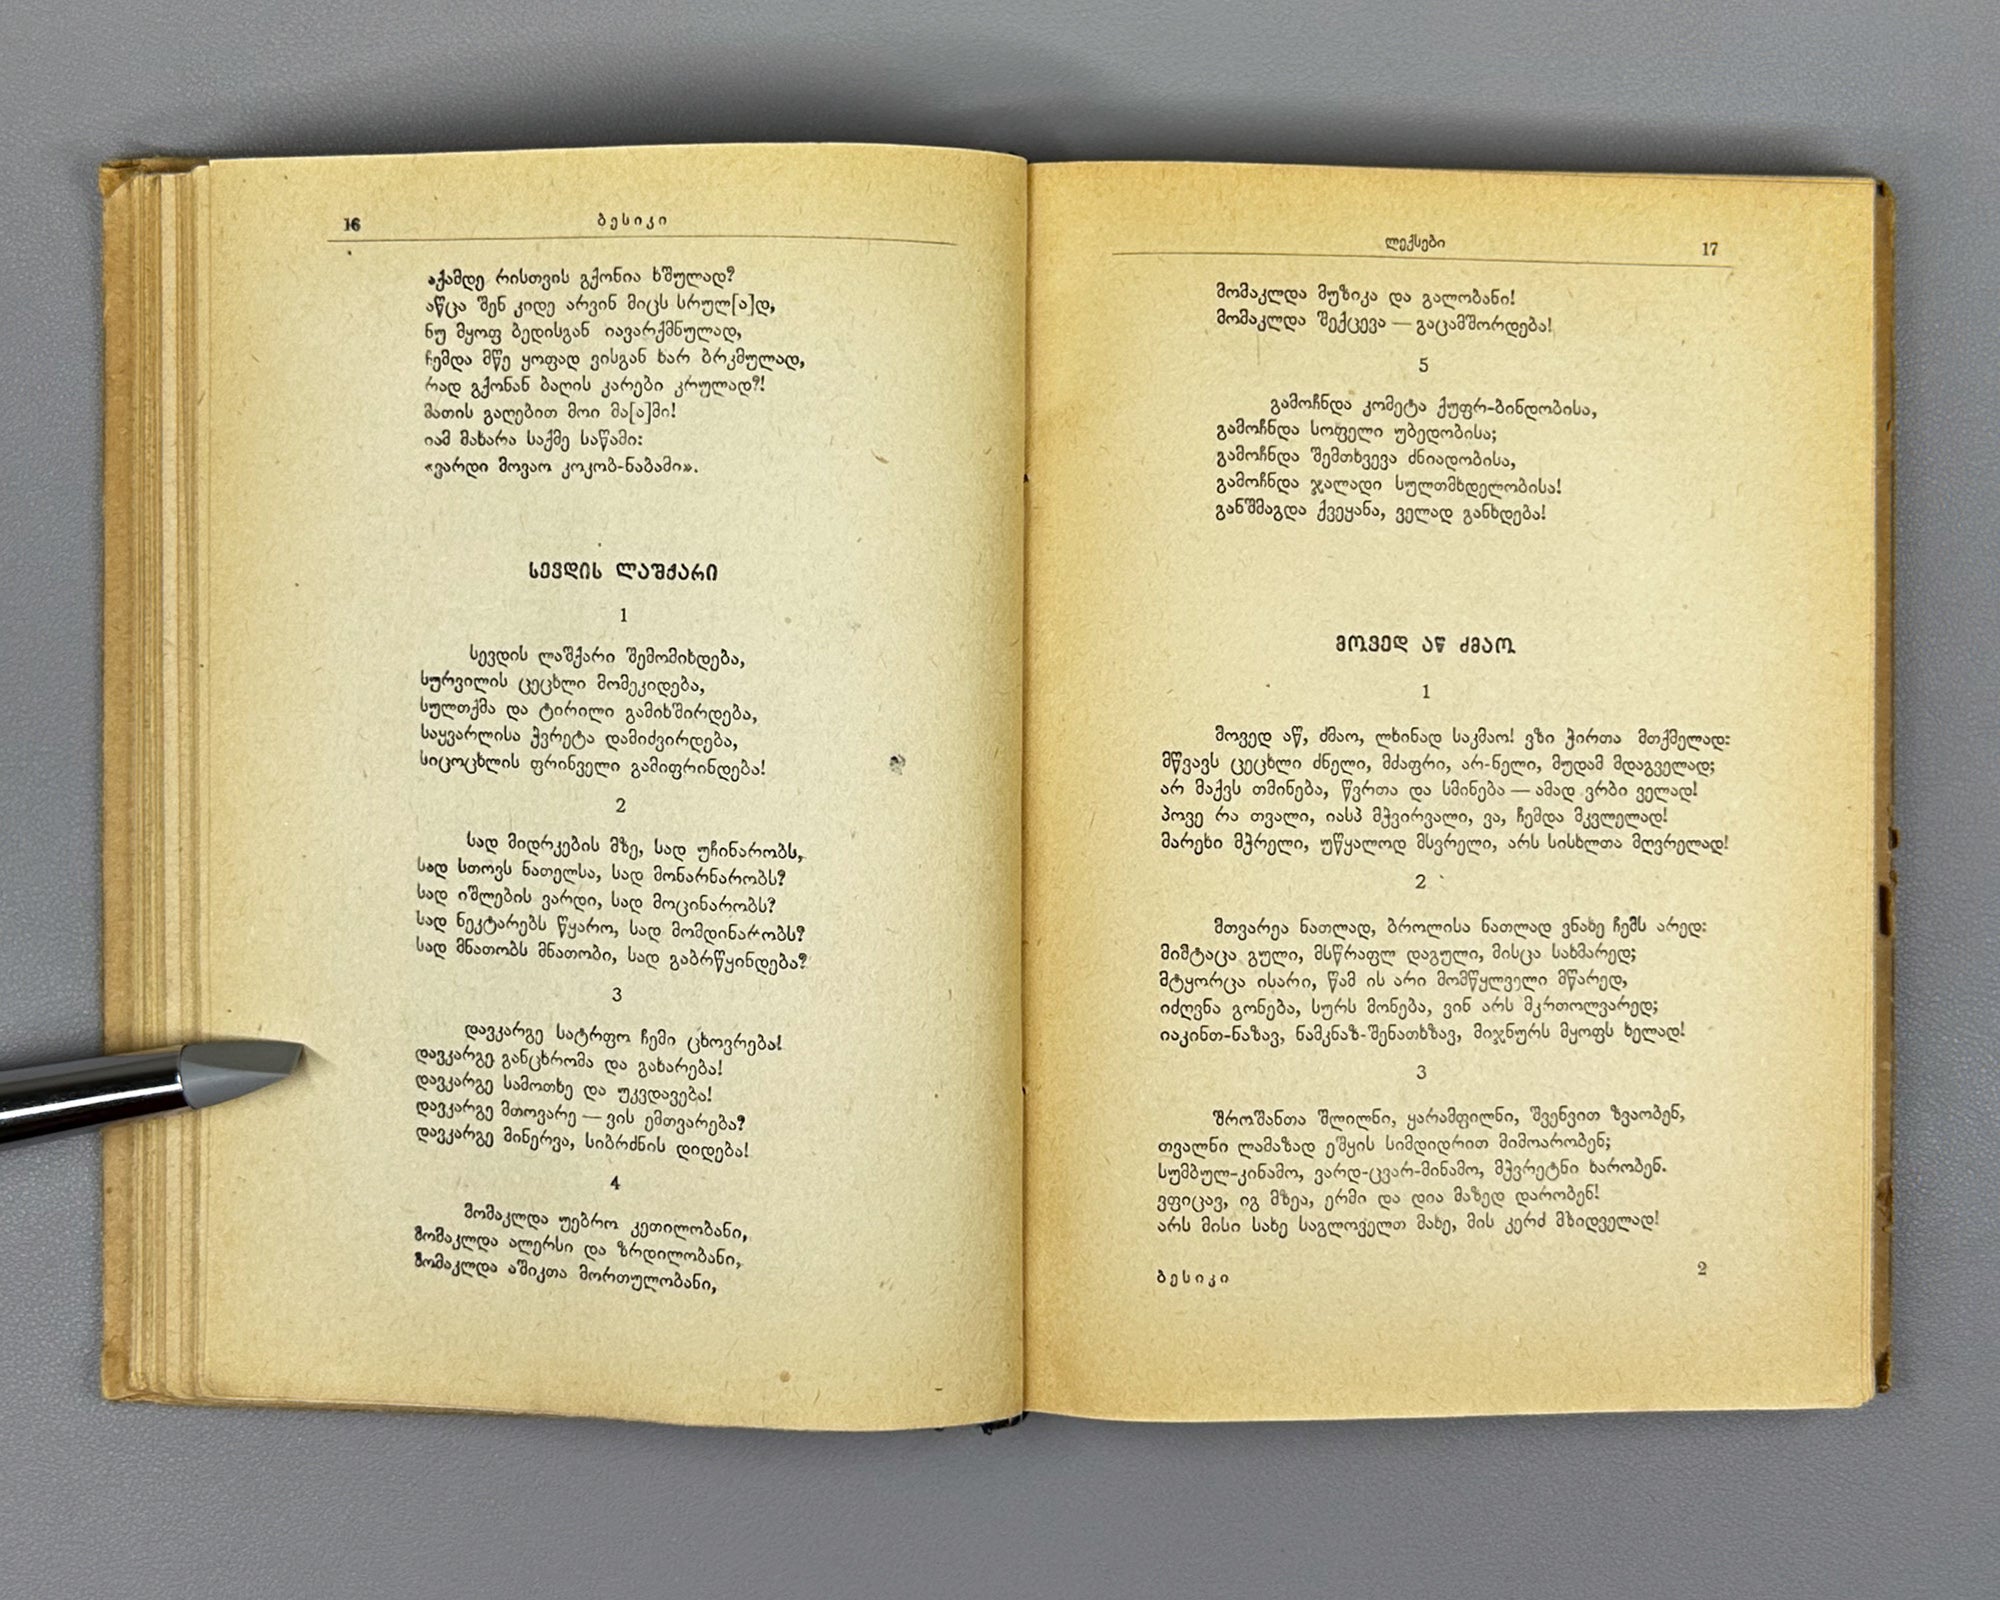 16
ბესიკი
აქამდე რისთვის გქონია ხშულად?
აწცა შენ კიდე არვინ მიცს სრულ[ა]დ,
ნუ მყოფ ბედისგან იავარქმნულად,
ჩემდა მწე ყოფად ვისგან ხარ ბრკმულად,
რად გქონან ბაღის კარები კრულად?!
მათის გაღებით მოი მა[ა]მი!
იამ მახარა საქმე საწამი:
«ვარდი მოვაო კოკობ-ნაბამი».
სევდის ლაშქარი
1
სევდის ლაშქარი შემომიხდება,
სურვილის ცეცხლი მომეკიდება,
სულთქმა და ტირილი გამიხშირდება,
საყვარლისა ჭვრეტა დამიძვირდება,
სიცოცხლის ფრინველი გამიფრინდება!
2
სად მიდრკების მზე, სად უჩინარობს,
სად სთოვს ნათელსა, სად მონარნარობს?
სად იშლების ვარდი, სად მოცინარობს?
სად ნეკტარებს წყარო, სად მომდინარობს?
სად მნათობს მნათობი, სად გაბრწყინდება?
3
დავკარგე სატრფო ჩემი ცხოვრება!
დავკარგე განცხრომა და გახარება!
დავკარგე სამოთხე და უკვდავება!
დავკარგე მთოვარე — ვის ემთვარება?
დავკარგე მინერვა, სიბრძნის დიდება!
4
მომაკლდა უებრო კეთილობანი,
მომაკლდა ალერსი და ზრდილობანი,
მომაკლდა აშიკთა მორთულობანი,
ლექსები
17
მომაკლდა მუზიკა და გალობანი!
მომაკლდა შექცევა — გაცამშორდება!
5
გამოჩნდა კომეტა ქუფრ-ბინდობისა,
გამოჩნდა სოფელი უბედობისა;
გამოჩნდა შემთხვევა ძნიადობისა,
გამოჩნდა ჯალადი სულთმხდელობისა!
განშმაგდა ქვეყანა, ველად განხდება!
მოვედ აწ ძმაო
1
მოვედ აწ, ძმაო, ლხინად საკმაო! ვზი ჭირთა მთქმელად:
მწვავს ცეცხლი ძნელი, მძაფრი, არ-ნელი, მუდამ მდაგველად;
არ მაქვს თმინება, წვრთა და სმინება — ამად ვრბი ველად!
პოვე რა თვალი, იასპ მჭვირვალი, ვა, ჩემდა მკვლელად!
მარეხი მჭრელი, უწყალოდ მსვრელი, არს სისხლთა მღვრელად!
2
მთვარეა ნათლად, ბროლისა ნათლად ვნახე ჩემს არედ:
მიმტაცა გული, მსწრაფლ დაგული, მისცა სახმარედ;
მტყორცა ისარი, წამ ის არი მომწყლველი მწარედ,
იძღვნა გონება, სურს მონება, ვინ არს მკრთოლვარედ;
იაკინთ-ნაზავ, ნამკნაზ-შენათხზავ, მიჯნურს მყოფს ხელად!
3
შროშანთა შლილნი, ყარამფილნი, შვენვით ზვაობენ,
თვალნი ლამაზად ეშყის სიმდიდრით მიმოარობენ;
სუმბულ-კინამო, ვარდ-ცვარ-მინამო, მჭვრეტნი ხარობენ.
ვფიცავ, იგ მზეა, ერმი და დია მაზედ დარობენ!
არს მისი სახე საგლოველთ მახე, მის კერძ მზიდველად!
ბესიკი
2